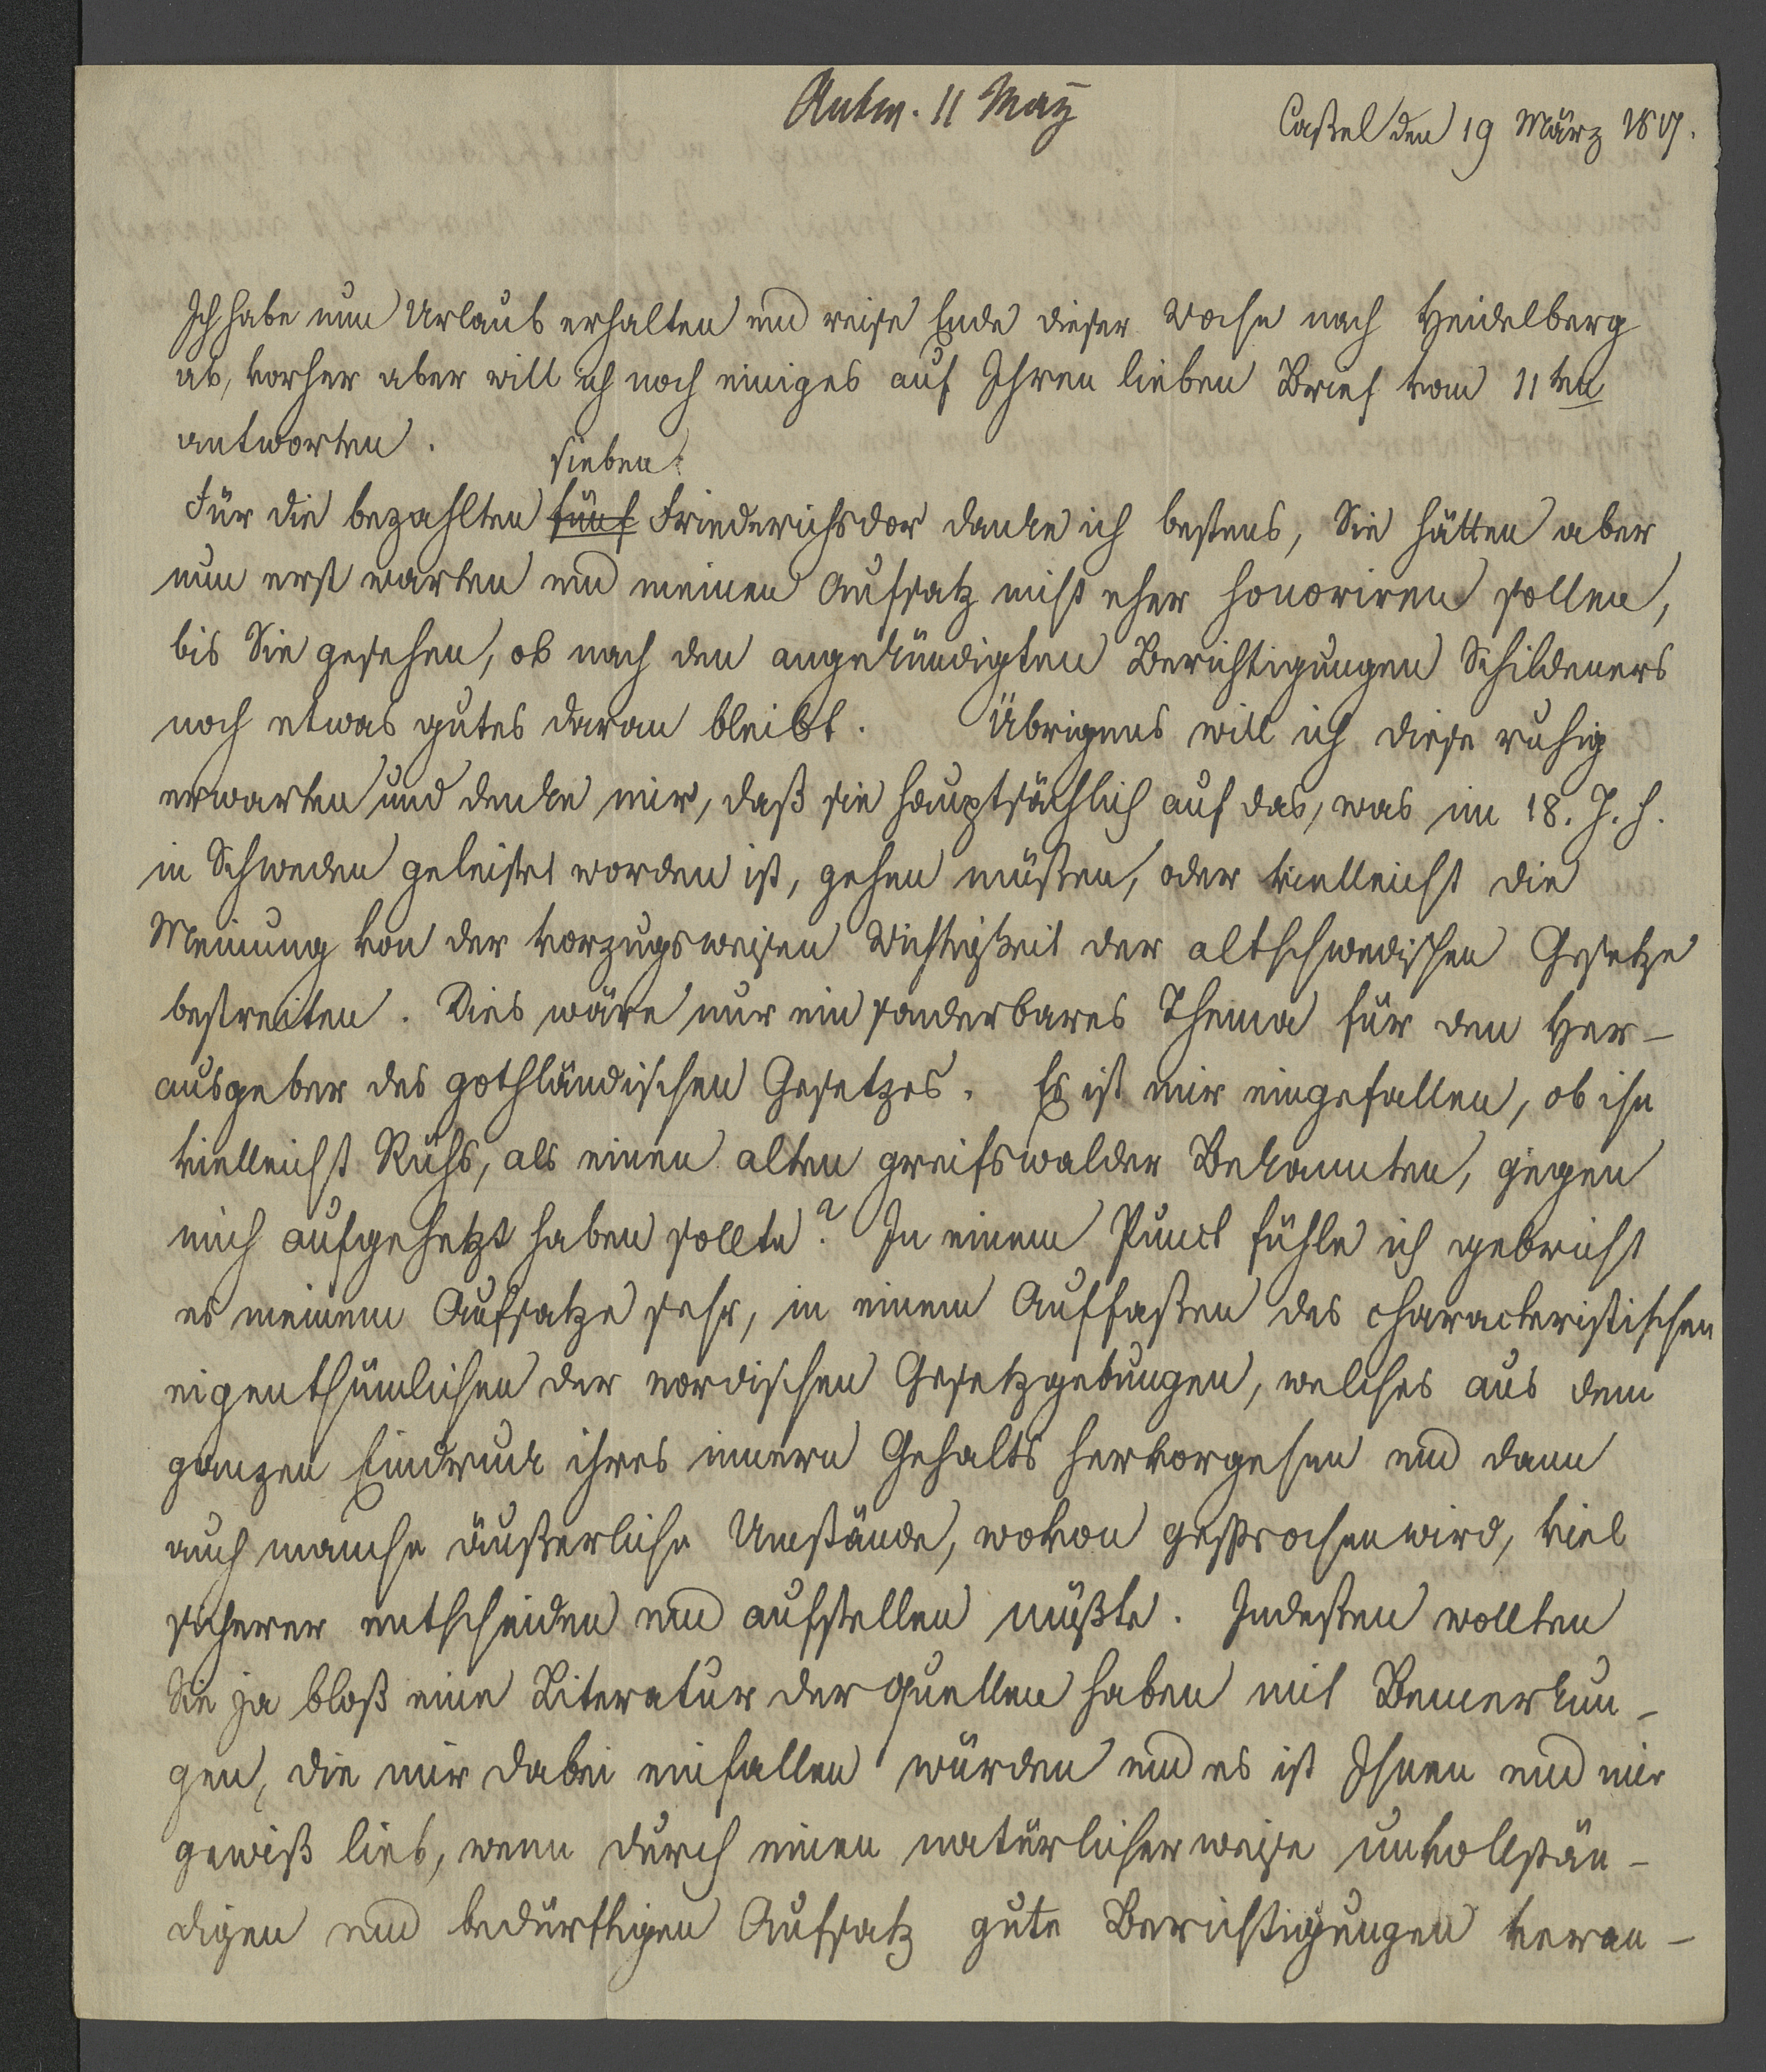 Antw. 11 May
Cassel den 19 März 1817.
Ich habe nun Urlaub erhalten und reise Ende dieser Woche nach Heidelberg
ab, vorher aber will ich noch einiges auf Ihren lieben Brief vom 11ten
antworten.
sieben
Für die bezahlten fünf Friederichsdor danke ich bestens, Sie hätten aber
nun erst warten und meinen Aufsatz nicht eher honoriren sollen,
bis Sie gesehen, ob nach den angekündigten Berichtigungen Schildeners
noch etwas gutes daran bleibt. Übrigens will ich diese ruhig
erwarten und denke mir, daß sie hauptsächlich auf das, was im 18. J. h.
in Schweden geleistet worden ist, gehen müßen, oder vielleicht die
Meinung von der vorzugsweisen Wichtigkeit der altschwedischen Gesetze
bestreiten. Dies wäre nur ein sonderbares Thema für den Her-
ausgeber des gothländischen Gesetzes. Es ist mir eingefallen, ob ihn
vielleicht Rühs, als einen alten greifswalder Bekannten, gegen
mich aufgehetzt haben sollte? In einem Punct fühle ich gebricht
es meinem Aufsatze sehr, in einem Auffaßen des characteristischen
eigenthümlichen der nordischen Gesetzgebungen, welches aus dem
ganzen Eindruck ihres innern Gehalts hervorgehen und dann
auch manche äußerliche Umstände, wovon gesprochen wird, viel
sicherer entscheiden und aufstellen müßte. Indeßen wollten
Sie ja bloß eine Literatur der Quellen haben mit Bemerkun-
gen, die mir dabei einfallen würden und es ist Ihnen und mir
gewiß lieb, wenn durch einen natürlicherweise unvollstän-
digen und bedürftigen Aufsatz gute Berichtigungen veran-